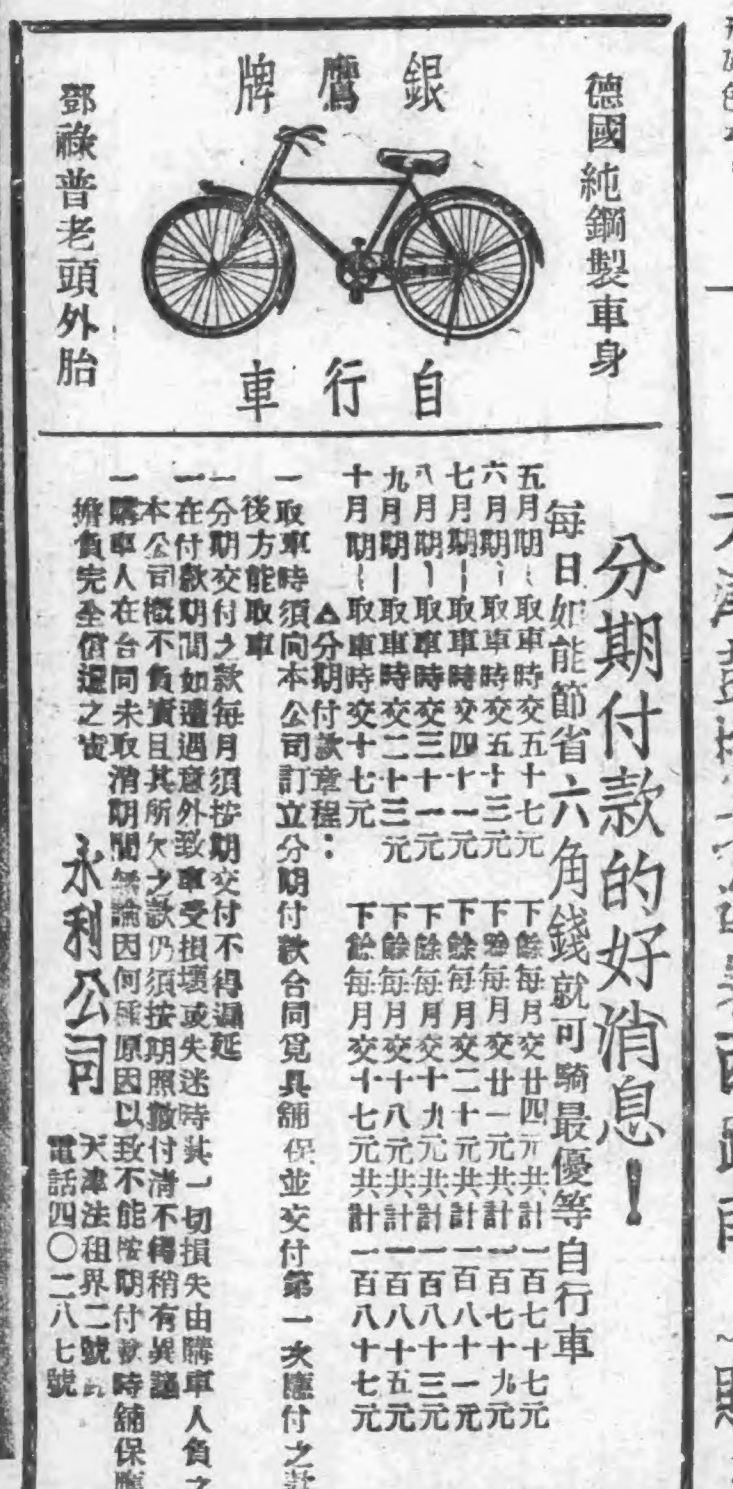 銀鷹牌
德國純鋼製車身
鄧祿普老頭外胎
自行車
分期付款的好消息！
每日如能節省六角錢就可騎最優等自行車
五月期—取車時交五十七元 下餘每月交廿四元共計一百七十七元
六月期—取車時交五十三元 下餘每月交廿一元共計一百七十九元
七月期—取車時交四十一元 下餘每月交二十元共計一百八十一元
八月期—取車時交三十一元 下餘每月交十九元共計一百八十三元
九月期—取車時交二十三元 下餘每月交十八元共計一百八十五元
十月期—取車時交十七元 下餘每月交十七元共計一百八十七元
△分期付款章程：
一取車時須向本公司訂立分期付款合同覓具舖保並交付第一次應付之款
後方能取車
一分期交付之款每月須按期交付不得遲延
一在付款期間如遭遇意外致車受損壞或失迷時其一切損失由購車人負之
本公司概不負責且其所欠之款仍須按期照數付清不得稍有異議
一購車人在合同未取消期間無論因何種原因以致不能按期付款時舖保應
擔負完全償還之責
永利公司
天津法租界二號
電話四〇二八七號